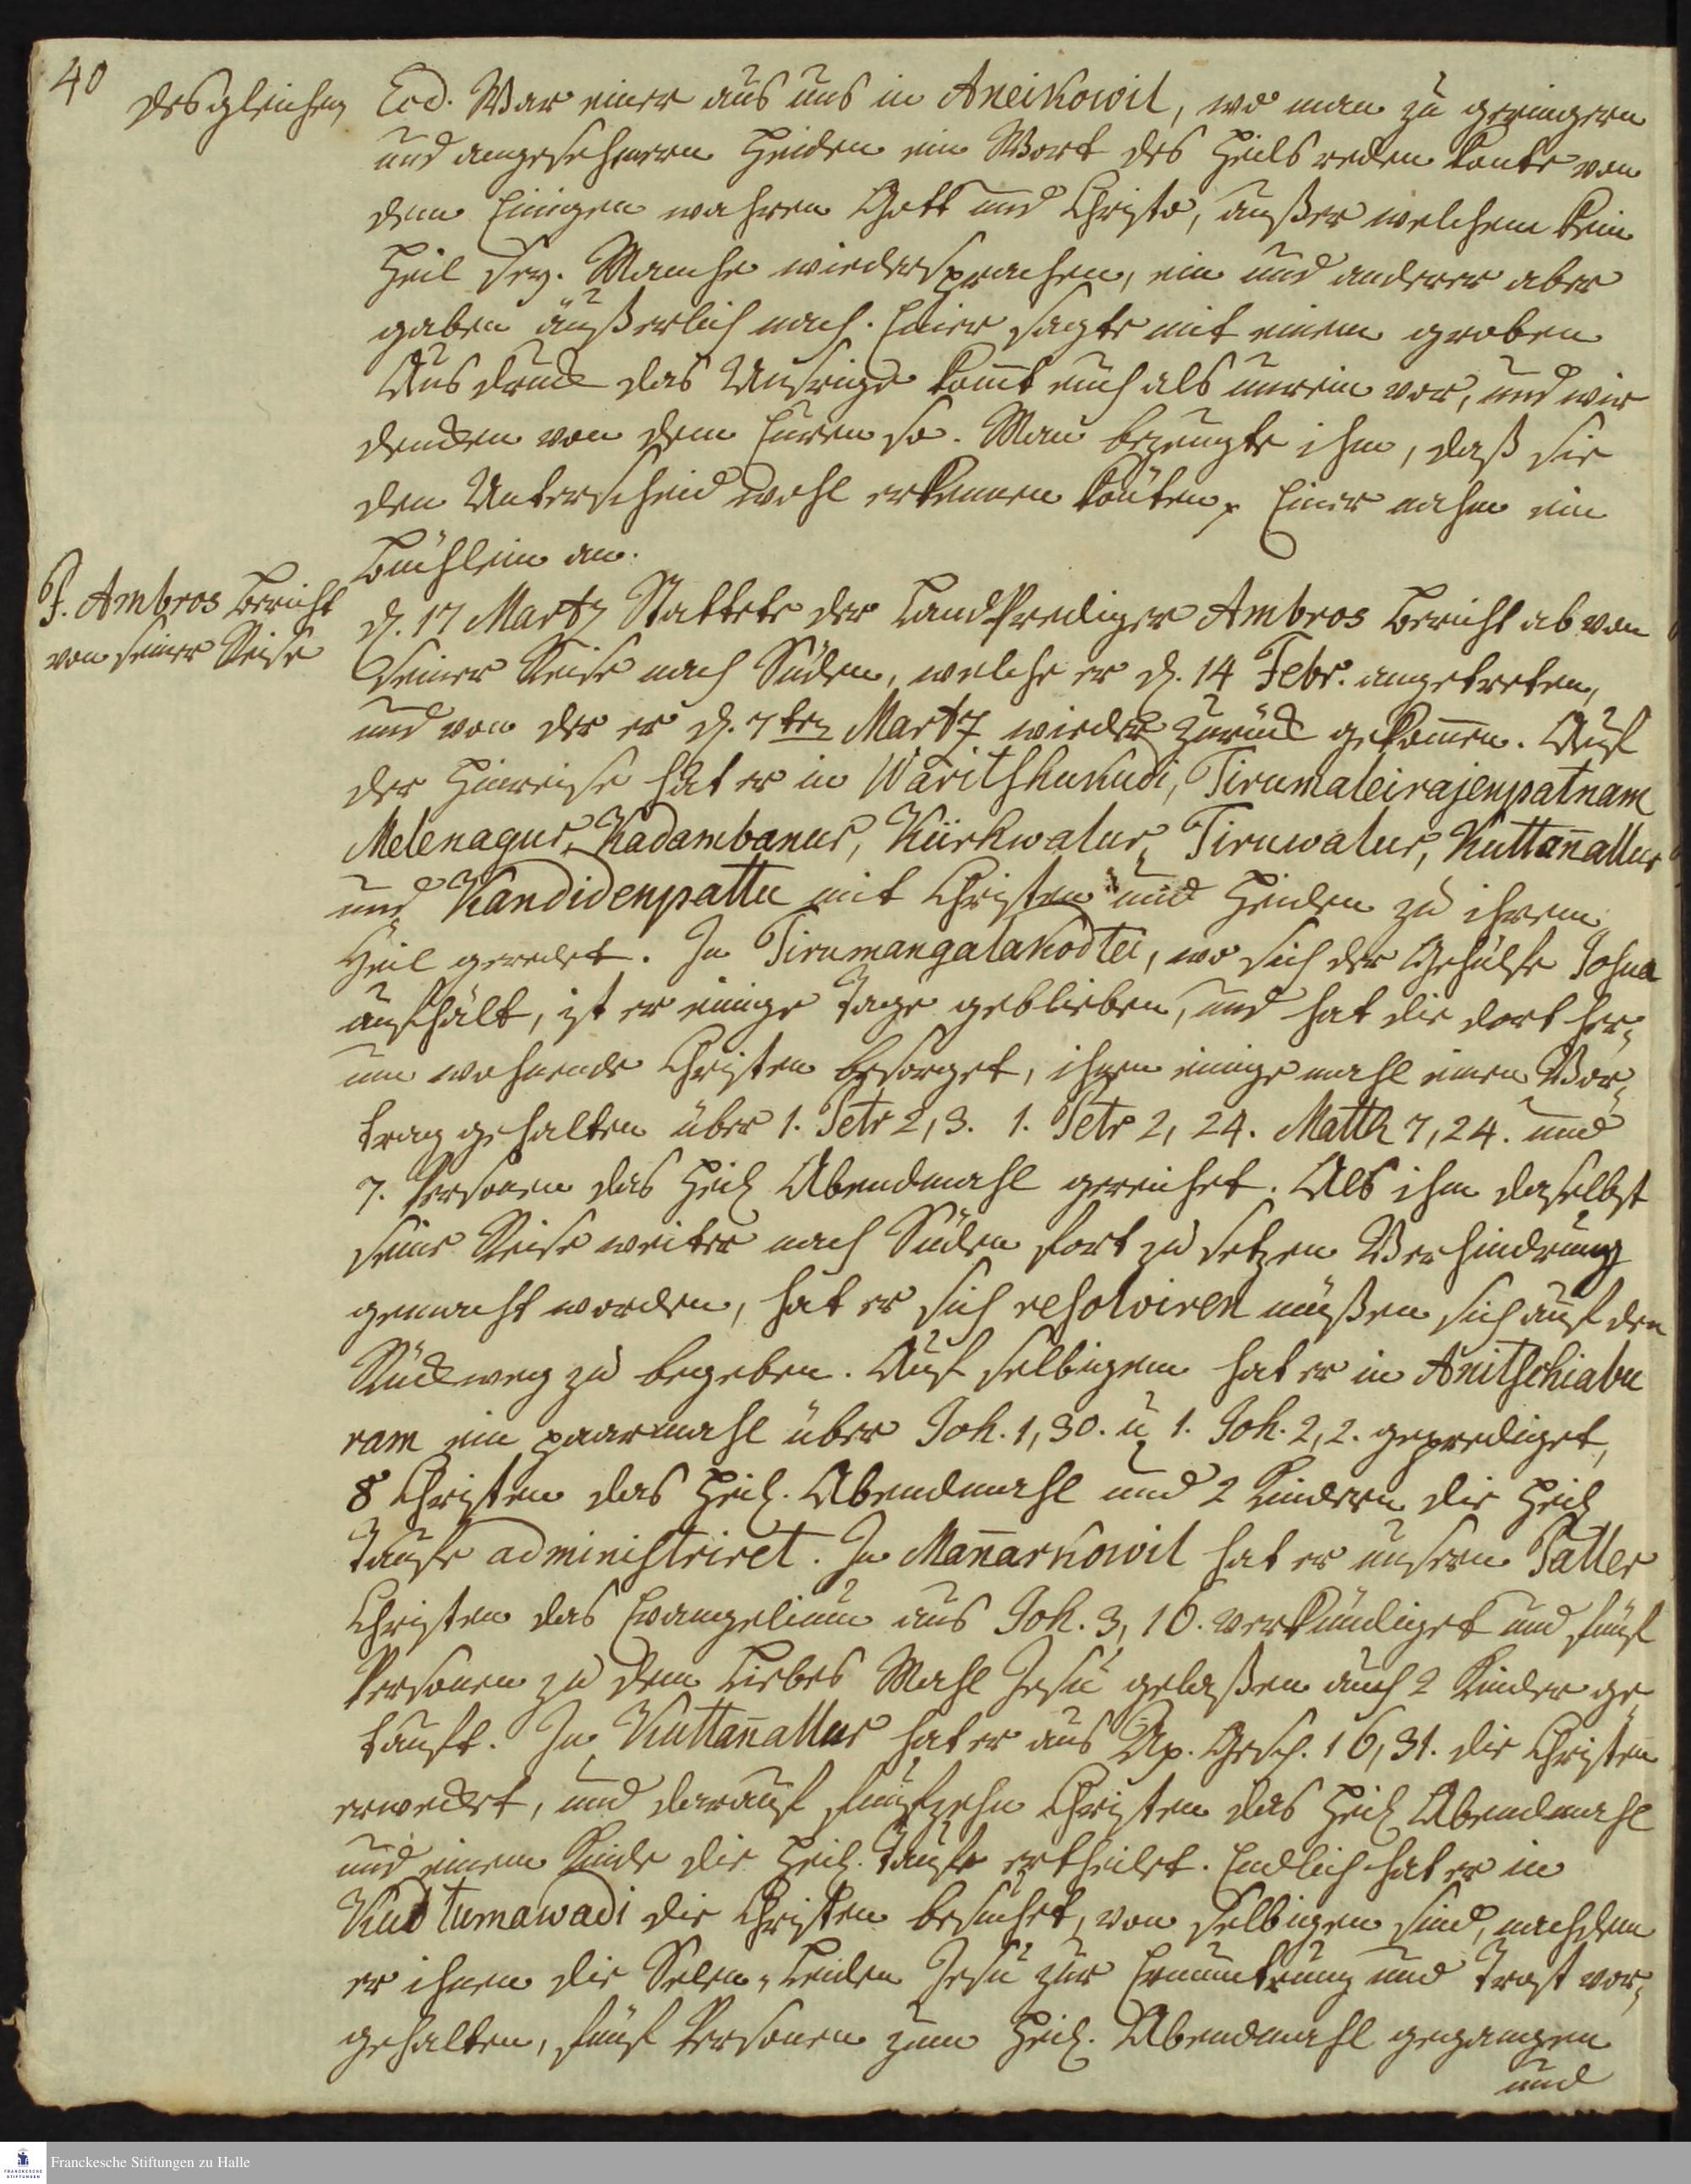 40
desgleichen
Eod. War einer aus uns in Aneikowil, wo man zu geringern
und angesehenern Heiden ein Wort des Heils reden konte von
dem Einigen wahren Gott und Christo, außer welchem kein
Heil sey. Manche wiedersprachen, ein und anderer aber
gaben äußerlich nach. Einer sagte mit einem groben
Ausdruck das Unsrige komt euch als unrein vor, und wir
dencken von dem Euren so. Man bezeugte ihm, daß sie
den Unterscheid wohl erkennen könten, Einer nahm ein
Büchlein an.
P. Ambros Bericht
von seiner Reise
d. 17 Martz Stattete der LandPrediger Ambros Bericht ab von
seiner Reise nach Süden, welche er d. 14 Febr. angetreten,
und von der er d. 7ten Martz wieder zurück gekom̄en. Auf
der Hinreise hat er in Waritshukudi, Tirumaleirajenpatnam
Melenagur, Kadambanur, Kiirkwalur, Tiruwalur, Kuttan̄allur
und Kandidenpattu mit Christen und Heiden zu ihrem
Heil geredet. In Tirumangalakodtei, wo sich der Gehülfe Josua
aufhält, ist er einige Tage geblieben, und hat die dort her„
um wohnende Christen besorget, ihnen einige mahl einen Vor„
trag gehalten über 1. Petr 2, 3. 1. Petr 2, 24. Matth 7, 24. und
7. Personen das Heil Abendmahl gereichet. Als ihm daselbst
seine Reise weiter nach Süden fort zu setzen Verhindrung
gemacht worden, hat er sich resolviren müßen sich auf den
Rückweg zu begeben. Auf selbigem hat er in Anitschiabu
ram ein paarmahl über Joh. 1, 30. u 1. Joh. 2, 2. geprediget,
8 Christen das Heil. Abendmahl und 2 Kindern die Heil
Taufe administriret. In Man̄arkowil hat er unsern Paller
Christen das Evangelium aus Joh. 3, 16. verkündiget und fünf
Personen zu dem Liebes Mahl Jesu gelaßen auch 2 Kinder ge
tauft. In Kuttan̄allur hat er aus Ap. Gesch. 16, 31. die Christen
erwecket, und darauf funfzehn Christen das Heil Abendmahl
und einem Kinde die Heil. Taufe ertheilet. Endlich hat er in
Kuttumawadi die Christen besuchet, von selbigen sind, nachdem
er ihnen die Selen„Leiden Jesu zur Ermuntrung und Trost vor„
gehalten, fünf Personen zum Heil. Abendmahl gegangen
und
Franckesche Stiftungen zu Halle